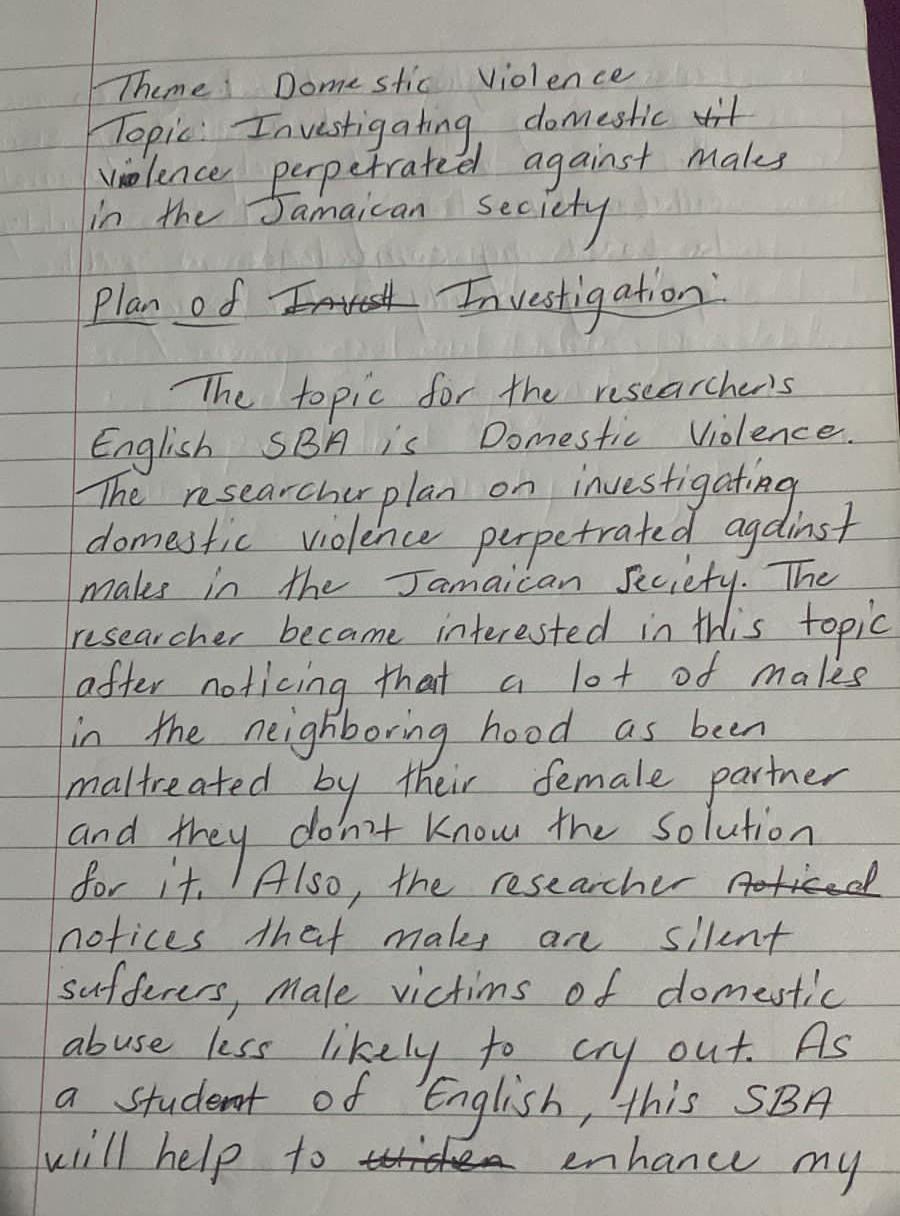 Theme: Domestic Violence
Topic: Investigating domestic vit
violence perpetrated against males
in the Jamaican seciety
Plan of Invest Investigation:
The topic for the researcher's
English SBA is Domestic Violence.
The researcher plan on investigating
domestic violence perpetrated against
males in the Jamaican seciety. The
researcher became interested in this topic
after noticing that a lot of males
in the neighboring hood as been
maltreated by their female partner
and they don't know the solution
for it. Also, the researcher noticed
notices that males are silent
sufferers, male victims of domestic
abuse less likely to cry out. As
a student of English, this SBA
will help to widen enhance my